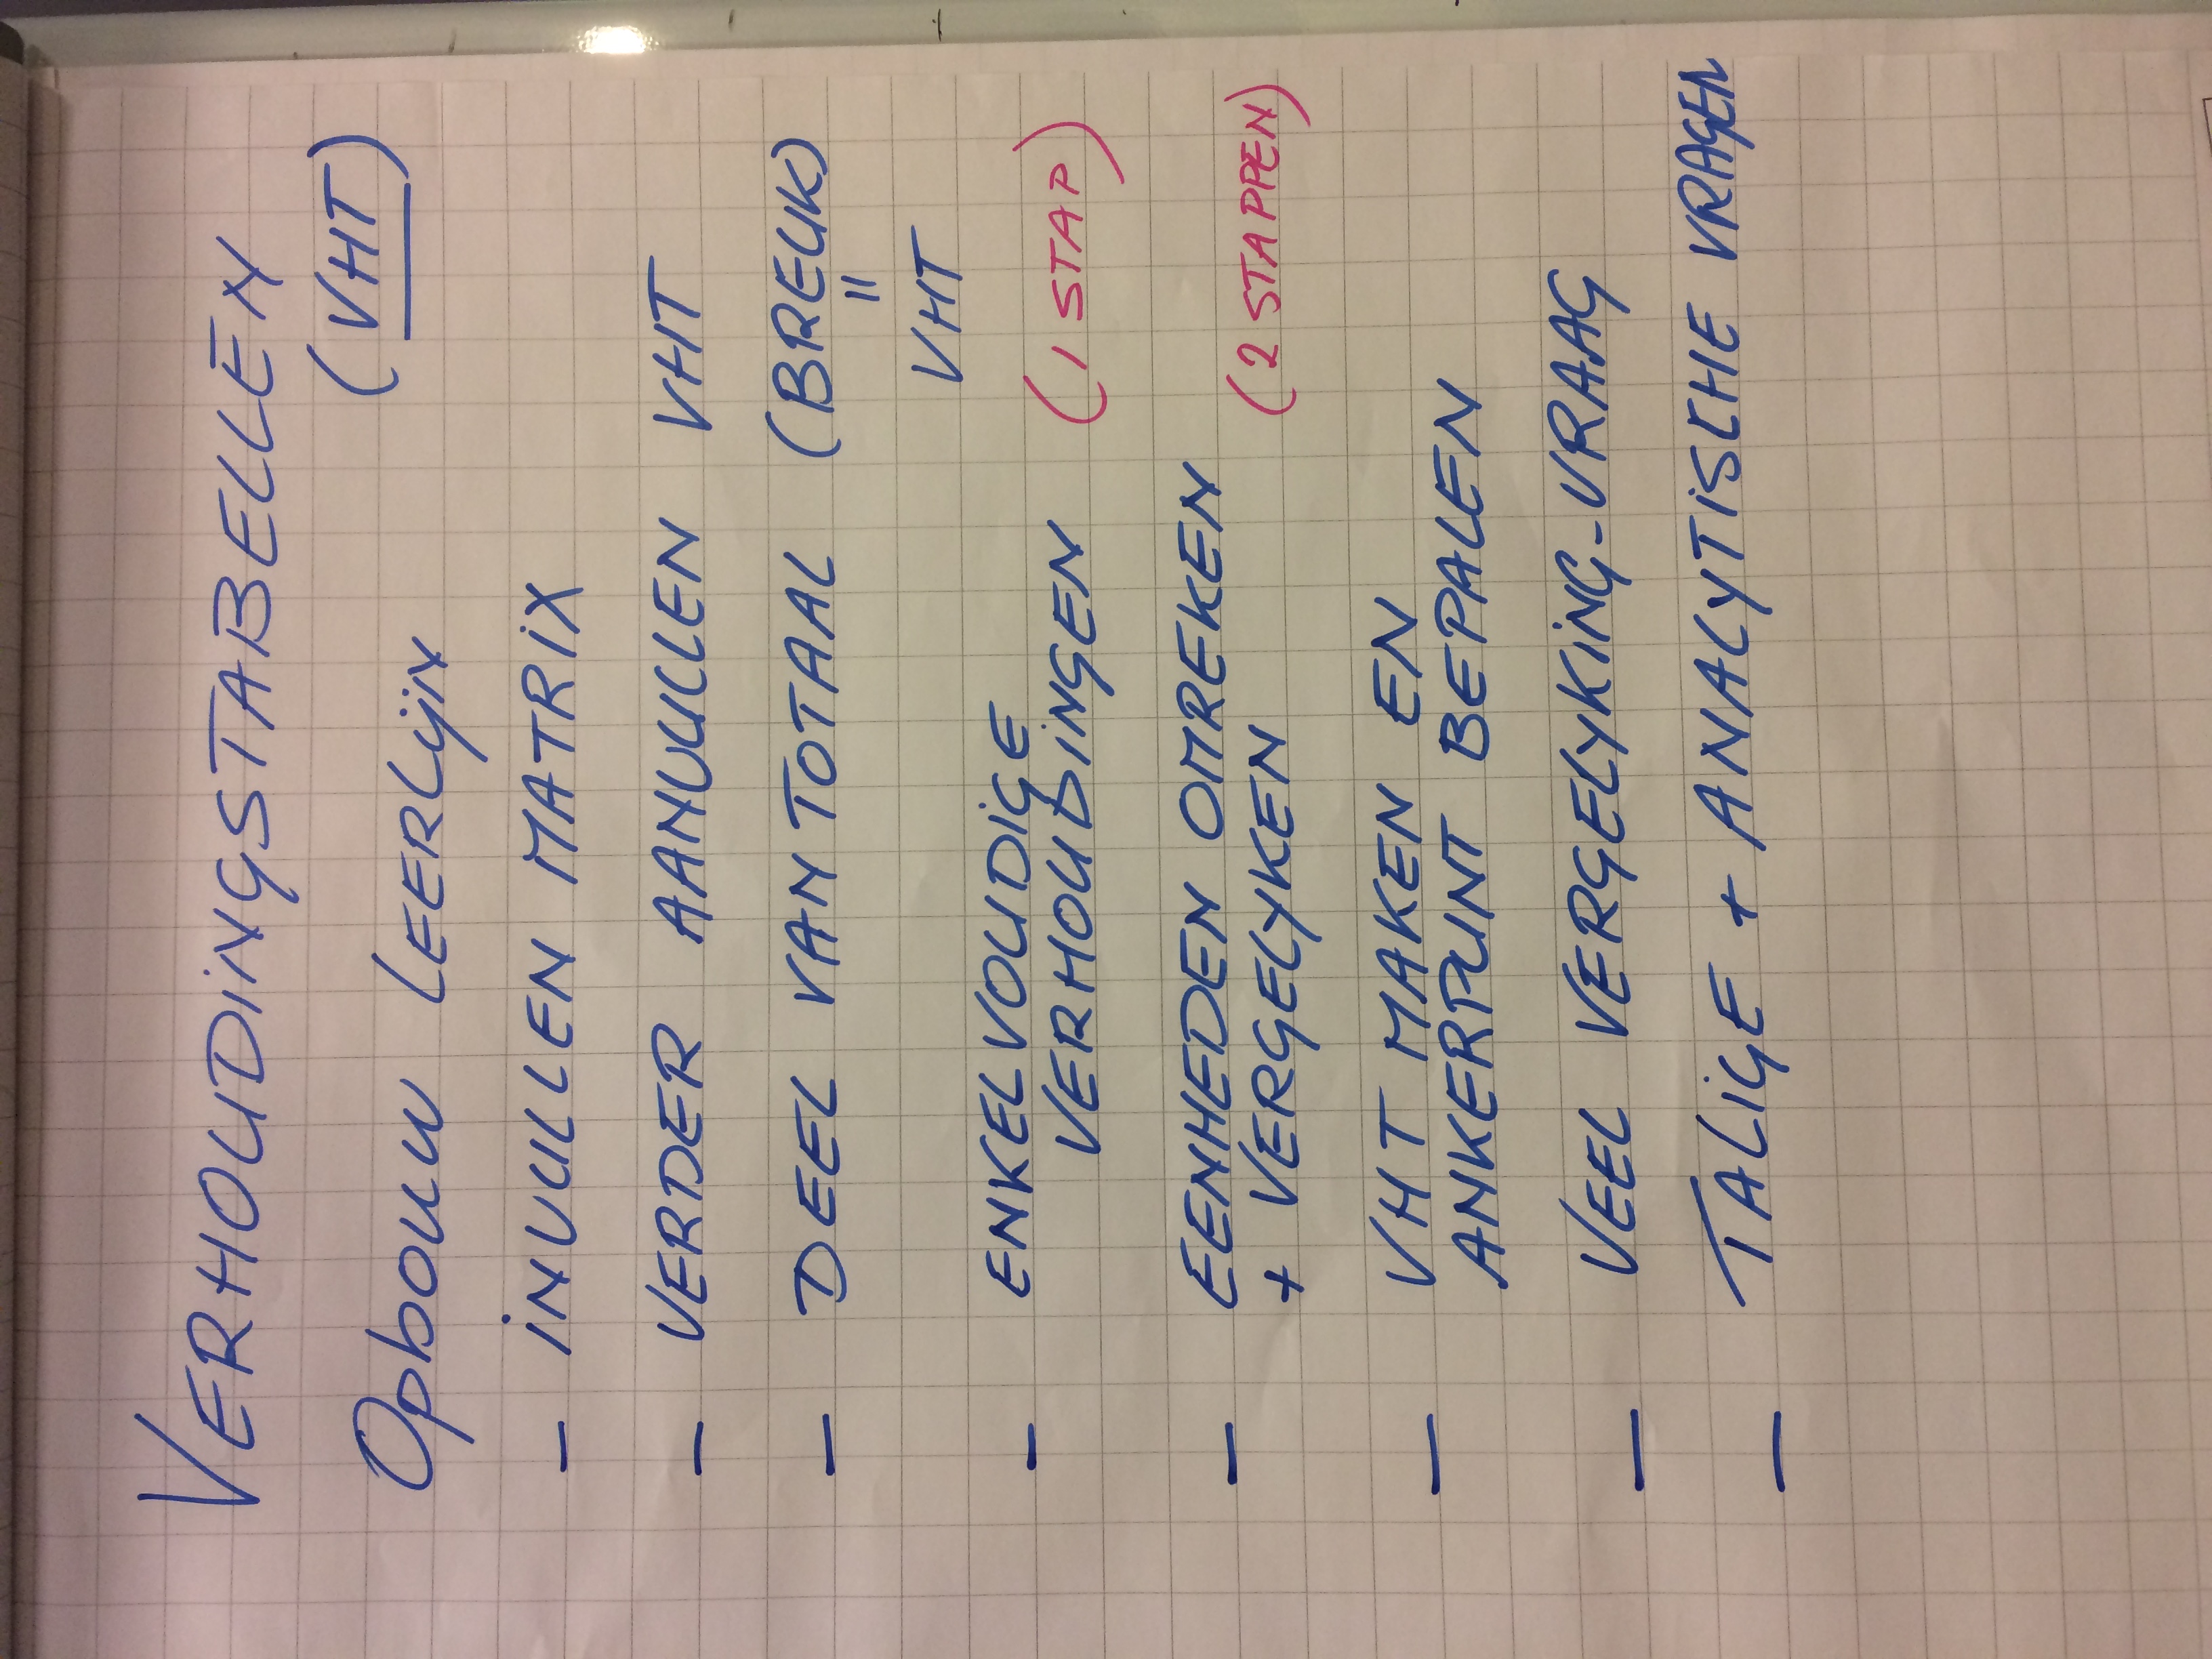 VERHOUDINGSTABELLEN
(VHT)
Opbouw LEERLijN
- iNVULLEN MATRIX
- VERDER AANVULLEN VHT
- DEEL VAN TOTAAL (BREUK)
=
VHT
- ENKELVOUDIGE
VERHOUDINGEN (1 STAP)
- EENHEDEN OMREKEN
+ VERGELYKEN (2 STAPPEN)
- VHT MAKEN EN
ANKERPUNT BEPALEN
- VEEL VERGELYKING-VRAAG
- TALIGE + ANALYTISCHE VRAGEN